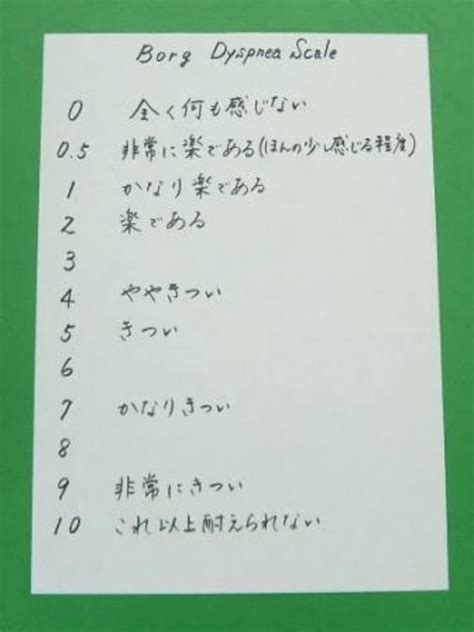 Borg Dyspnea Scale
0 全く何も感じない
0.5 非常に楽である(ほんの少し感じる程度)
1 かなり楽である
2 楽である
3
4 ややきつい
5 きつい
6
7 かなりきつい
8
9 非常にきつい
10 これ以上耐えられない